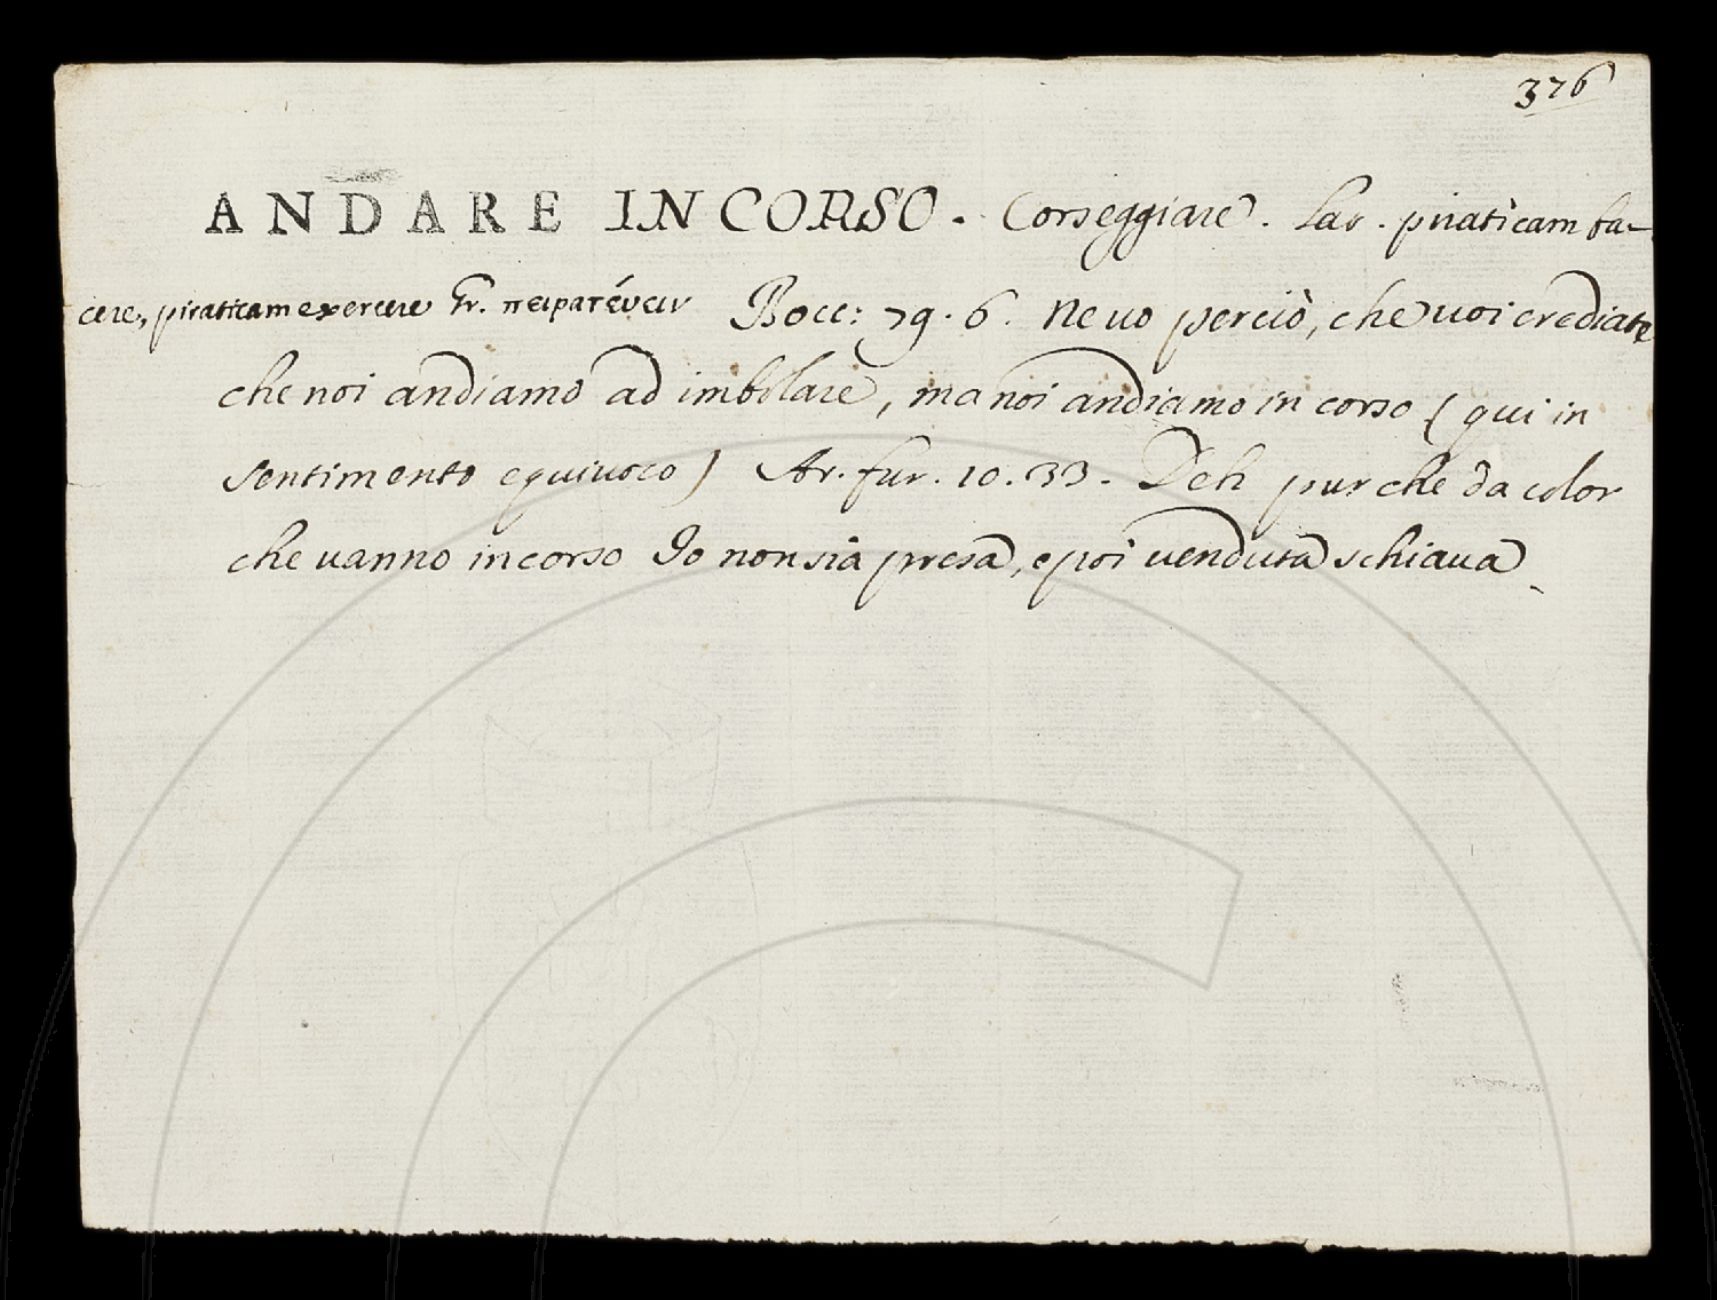 376
ANDARE IN CORSO. Corseggiare. Lat. piraticam fa-
cere, piraticam exercere Gr. πειρατέυειν Bocc: 79. 6. Ne vo perciò, che voi crediate
che noi andiamo ad imbolare, ma noi andiamo in corso (qui in
sentimento equivoco) Ar. fur. 10. 33. Deh pur che da color
che vanno in corso Io non sia presa, e poi venduta schiava